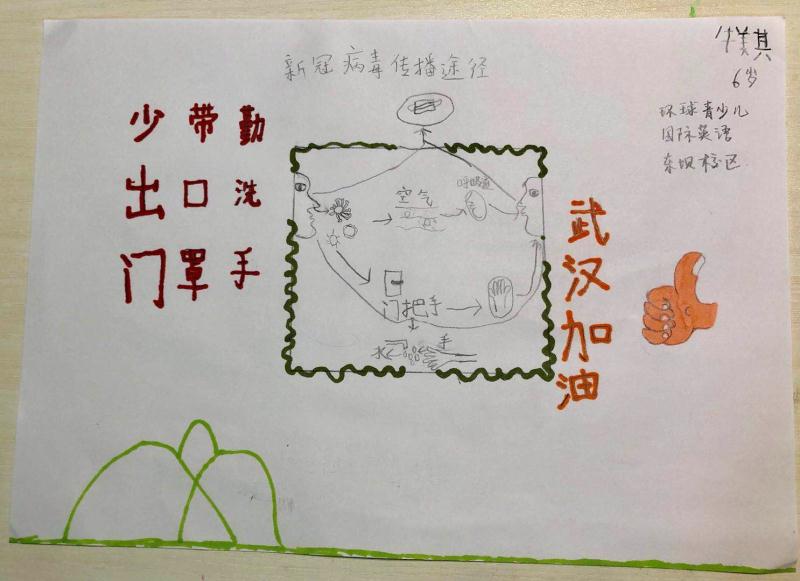 新冠病毒传播途径
其
6岁
环球青少儿
国际英语
东坝校区
少出门
带口罩
勤洗手
空气
呼吸道
门把手
水
手
武汉加油